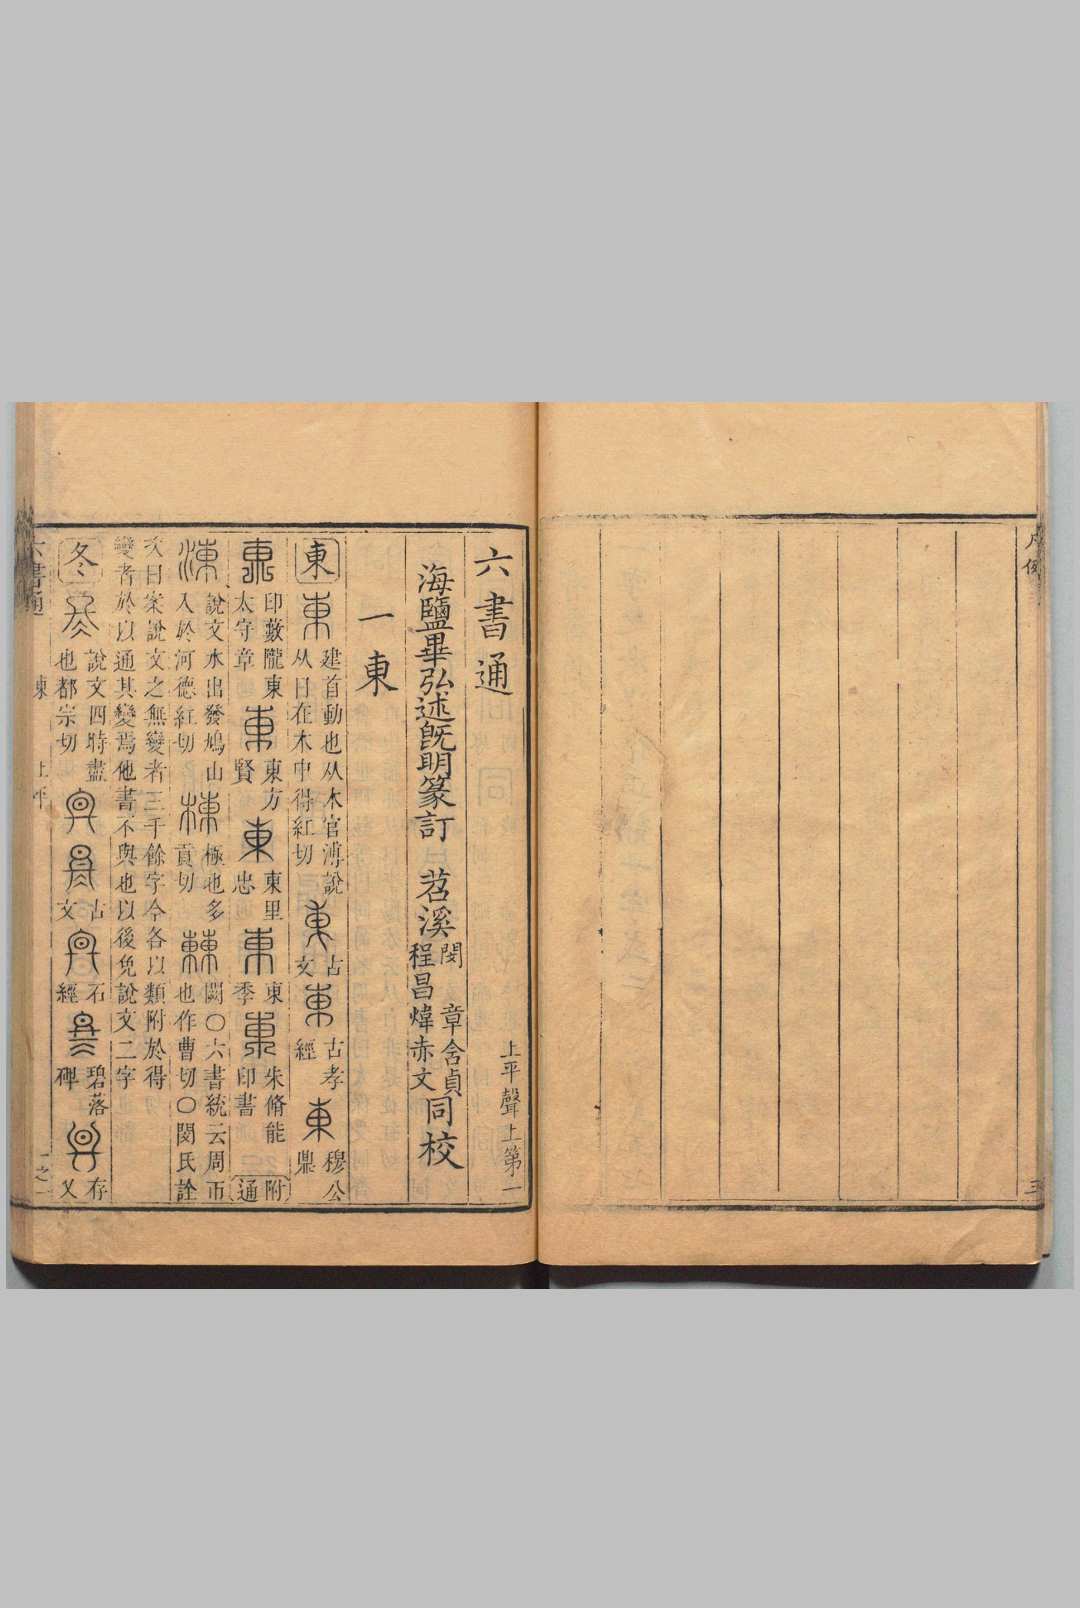 凡例
三
六書通 上平聲上第一
海鹽畢弘述旣明篆訂 苕溪 閔章含貞 程昌煒赤文 同校
一東
東 東 建首動也从木官溥說从日在木中得紅切 東 古文 東 古孝經 東 穆公鼎
東 印藪隴東太守章 東 東方賢 東 東里忠 東 東季 東 朱脩能印書 附通
涷 說文水出發鳩山入於河德紅切 棟 極也多貢切 𣍘 闕〇六書統云周帀也作曹切〇閔氏詮
次曰案說文之無變者三千餘字今各以類附於得
變者於以通其變焉他書不與也以後免說文二字
冬 冬 說文四時盡也都宗切 古文 石經 碧落碑 存乂
六書通 東 上平 一之一